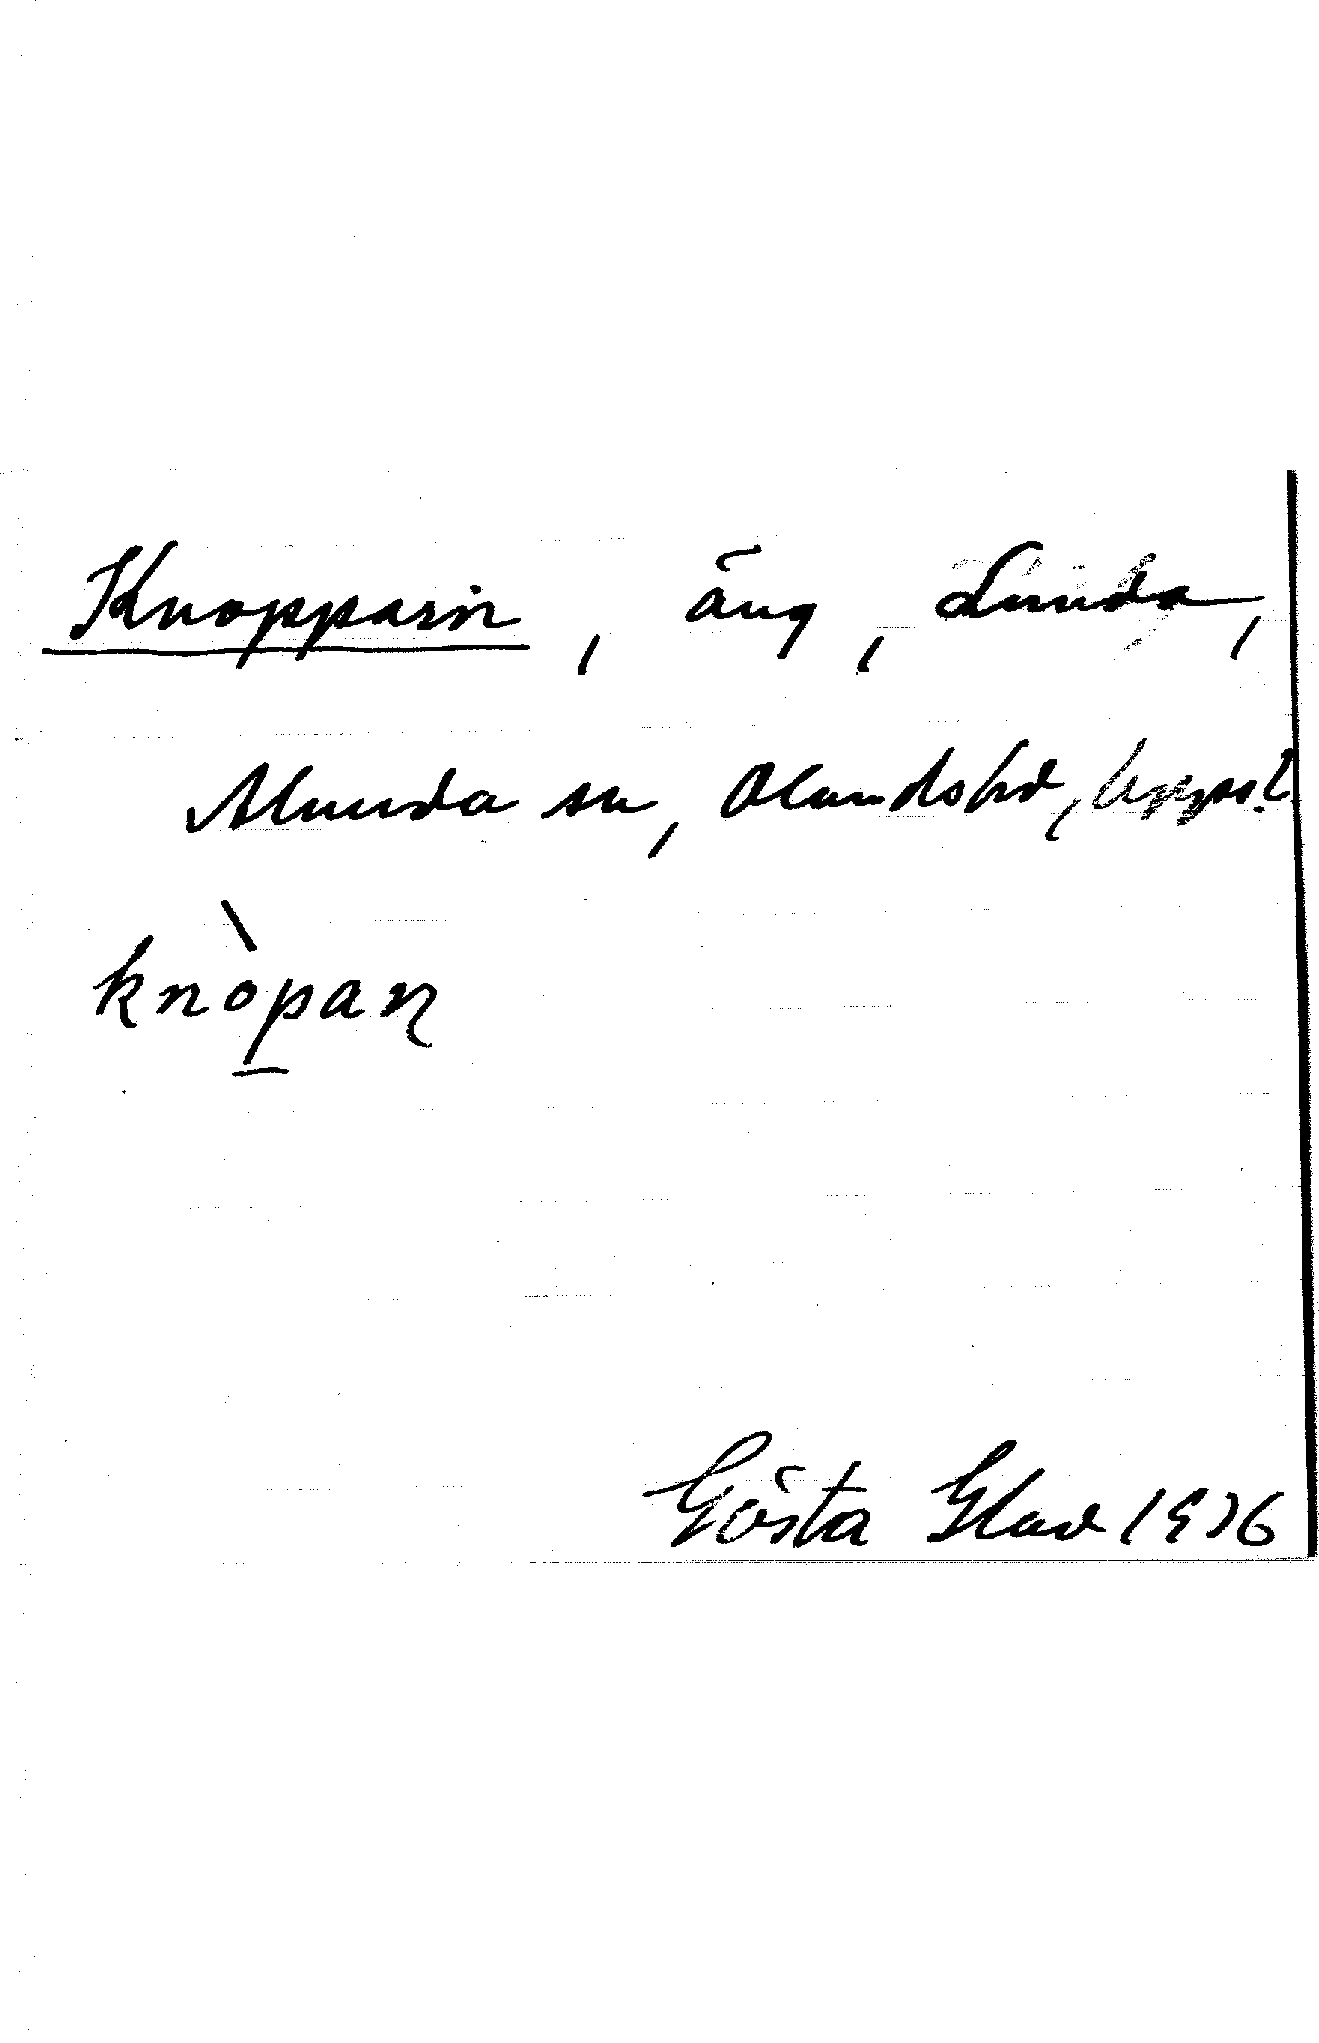 Knopparn, äng, Lunda,
Alunda sn, Olandshd, Uppsl
knòpaɳ
Gösta Glad 1936